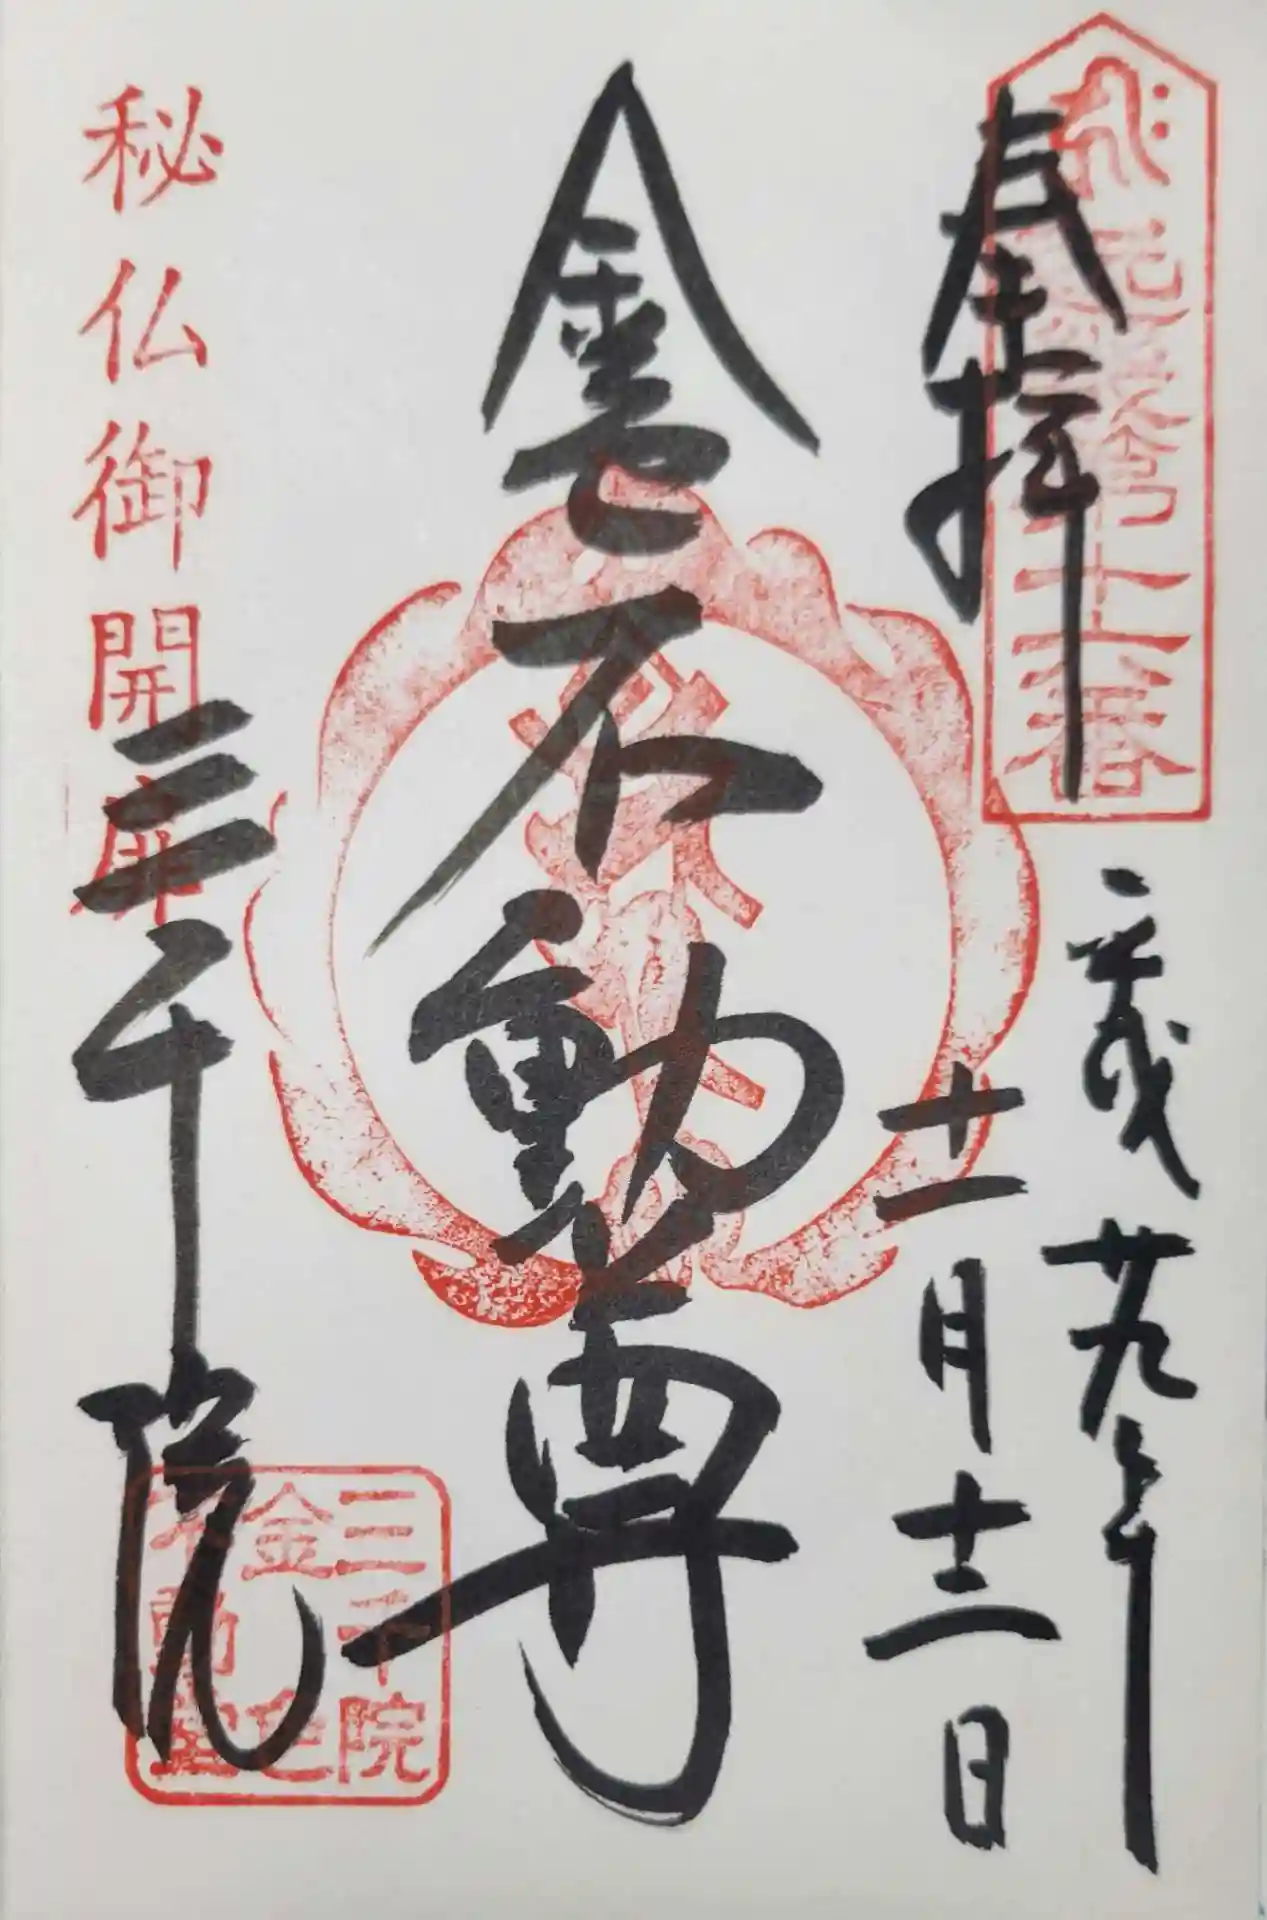 奉拝
平成廿九年
十一月十二日
金色不動尊
秘仏御開扉
三千院
三千院
金色
不動堂